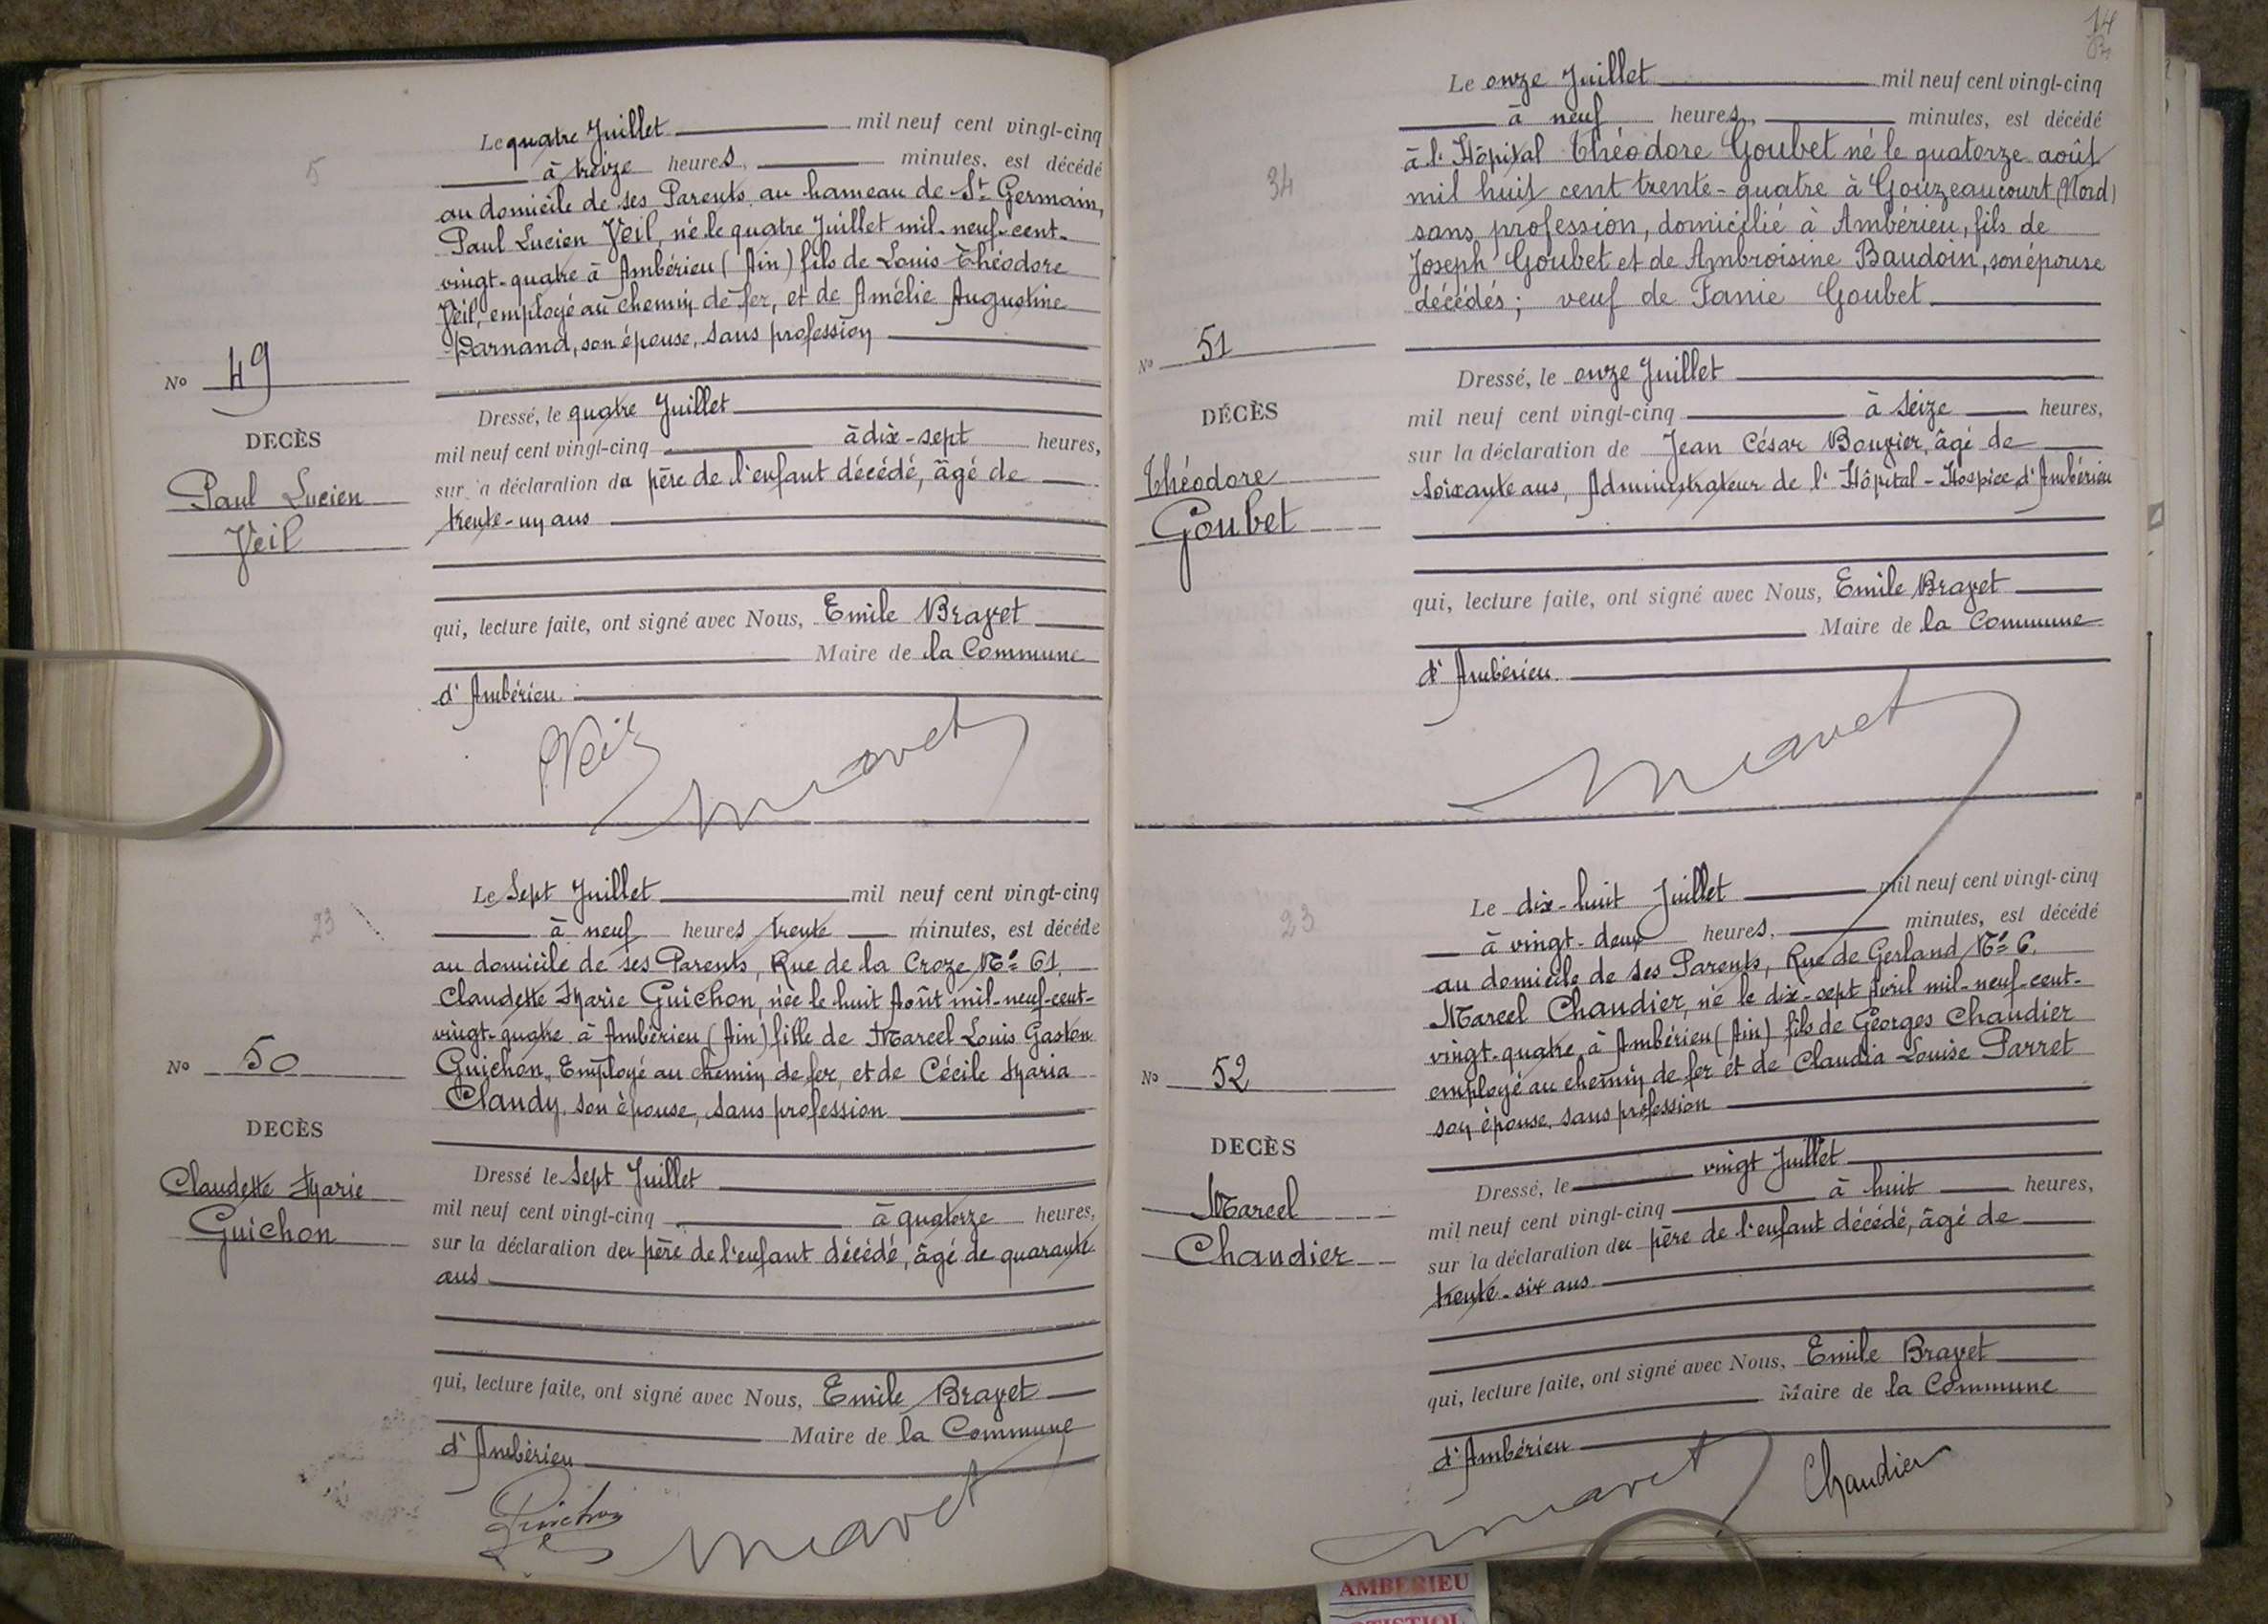 5
Le quatre Juillet mil neuf cent vingt-cinq
à treize heures, minutes, est décédé
au domicile de ses Parents au hameau de St Germain,
Paul Lucien Veil, né le quatre Juillet mil-neuf-cent-
vingt-quatre à Ambérieu (Ain) fils de Louis Théodore
Veil, employé au chemin de fer, et de Amélie Augustine
Darnand, son épouse, sans profession
No 49
DECÈS
Paul Lucien
Veil
Dressé, le quatre Juillet
mil neuf cent vingt-cinq à dix-sept heures,
sur la déclaration du père de l'enfant décédé, âgé de
trente-un ans
qui, lecture faite, ont signé avec Nous, Emile Bravet
Maire de la Commune
d'Ambérieu
Veil
23
Le Sept Juillet mil neuf cent vingt-cinq
à neuf heures trente minutes, est décédé
au domicile de ses Parents, Rue de la Croze No 61,
Claudette Marie Guichon, née le huit Août mil-neuf-cent-
vingt-quatre à Ambérieu (Ain) fille de Marcel Louis Gaston
Guichon, Employé au chemin de fer, et de Cécile Maria
Claudy, son épouse, sans profession
No 50
DECÈS
Claudette Marie
Guichon
Dressé le Sept Juillet
mil neuf cent vingt-cinq à quatorze heures,
sur la déclaration du père de l'enfant décédé, âgé de quarante
ans
qui, lecture faite, ont signé avec Nous, Emile Bravet
Maire de la Commune
d'Ambérieu
Guichon
Bravet
14
34
Le onze Juillet mil neuf cent vingt-cinq
à neuf heures, minutes, est décédé
à l'Hôpital Théodore Goubet né le quatorze août
mil huit cent trente-quatre à Gouzeaucourt (Nord)
sans profession, domicilié à Ambérieu, fils de
Joseph Goubet et de Ambroisine Baudoin, son épouse
décédés; veuf de Fanie Goubet
No 51
DÉCÈS
Théodore
Goubet
Dressé, le onze Juillet
mil neuf cent vingt-cinq à Seize heures,
sur la déclaration de Jean César Bouvier, âgé de
soixante ans, Administrateur de l'Hôpital-Hospice d'Ambérieu
qui, lecture faite, ont signé avec Nous, Emile Bravet
Maire de la Commune
d'Ambérieu
Bravet
23
Le dix-huit Juillet mil neuf cent vingt-cinq
à vingt-deux heures, minutes, est décédé
au domicile de ses Parents, Rue de Gerland No 6,
Marcel Chaudier, né le dix-sept Avril mil-neuf-cent-
vingt-quatre à Ambérieu (Ain) fils de Georges Chaudier
employé au chemin de fer et de Claudia Louise Parret
son épouse, sans profession
No 52
DECÈS
Marcel
Chaudier
Dressé, le vingt Juillet
mil neuf cent vingt-cinq à huit heures,
sur la déclaration du père de l'enfant décédé, âgé de
trente-six ans
qui, lecture faite, ont signé avec Nous, Emile Bravet
Maire de la Commune
d'Ambérieu
Bravet
Chaudier
AMBERIEU